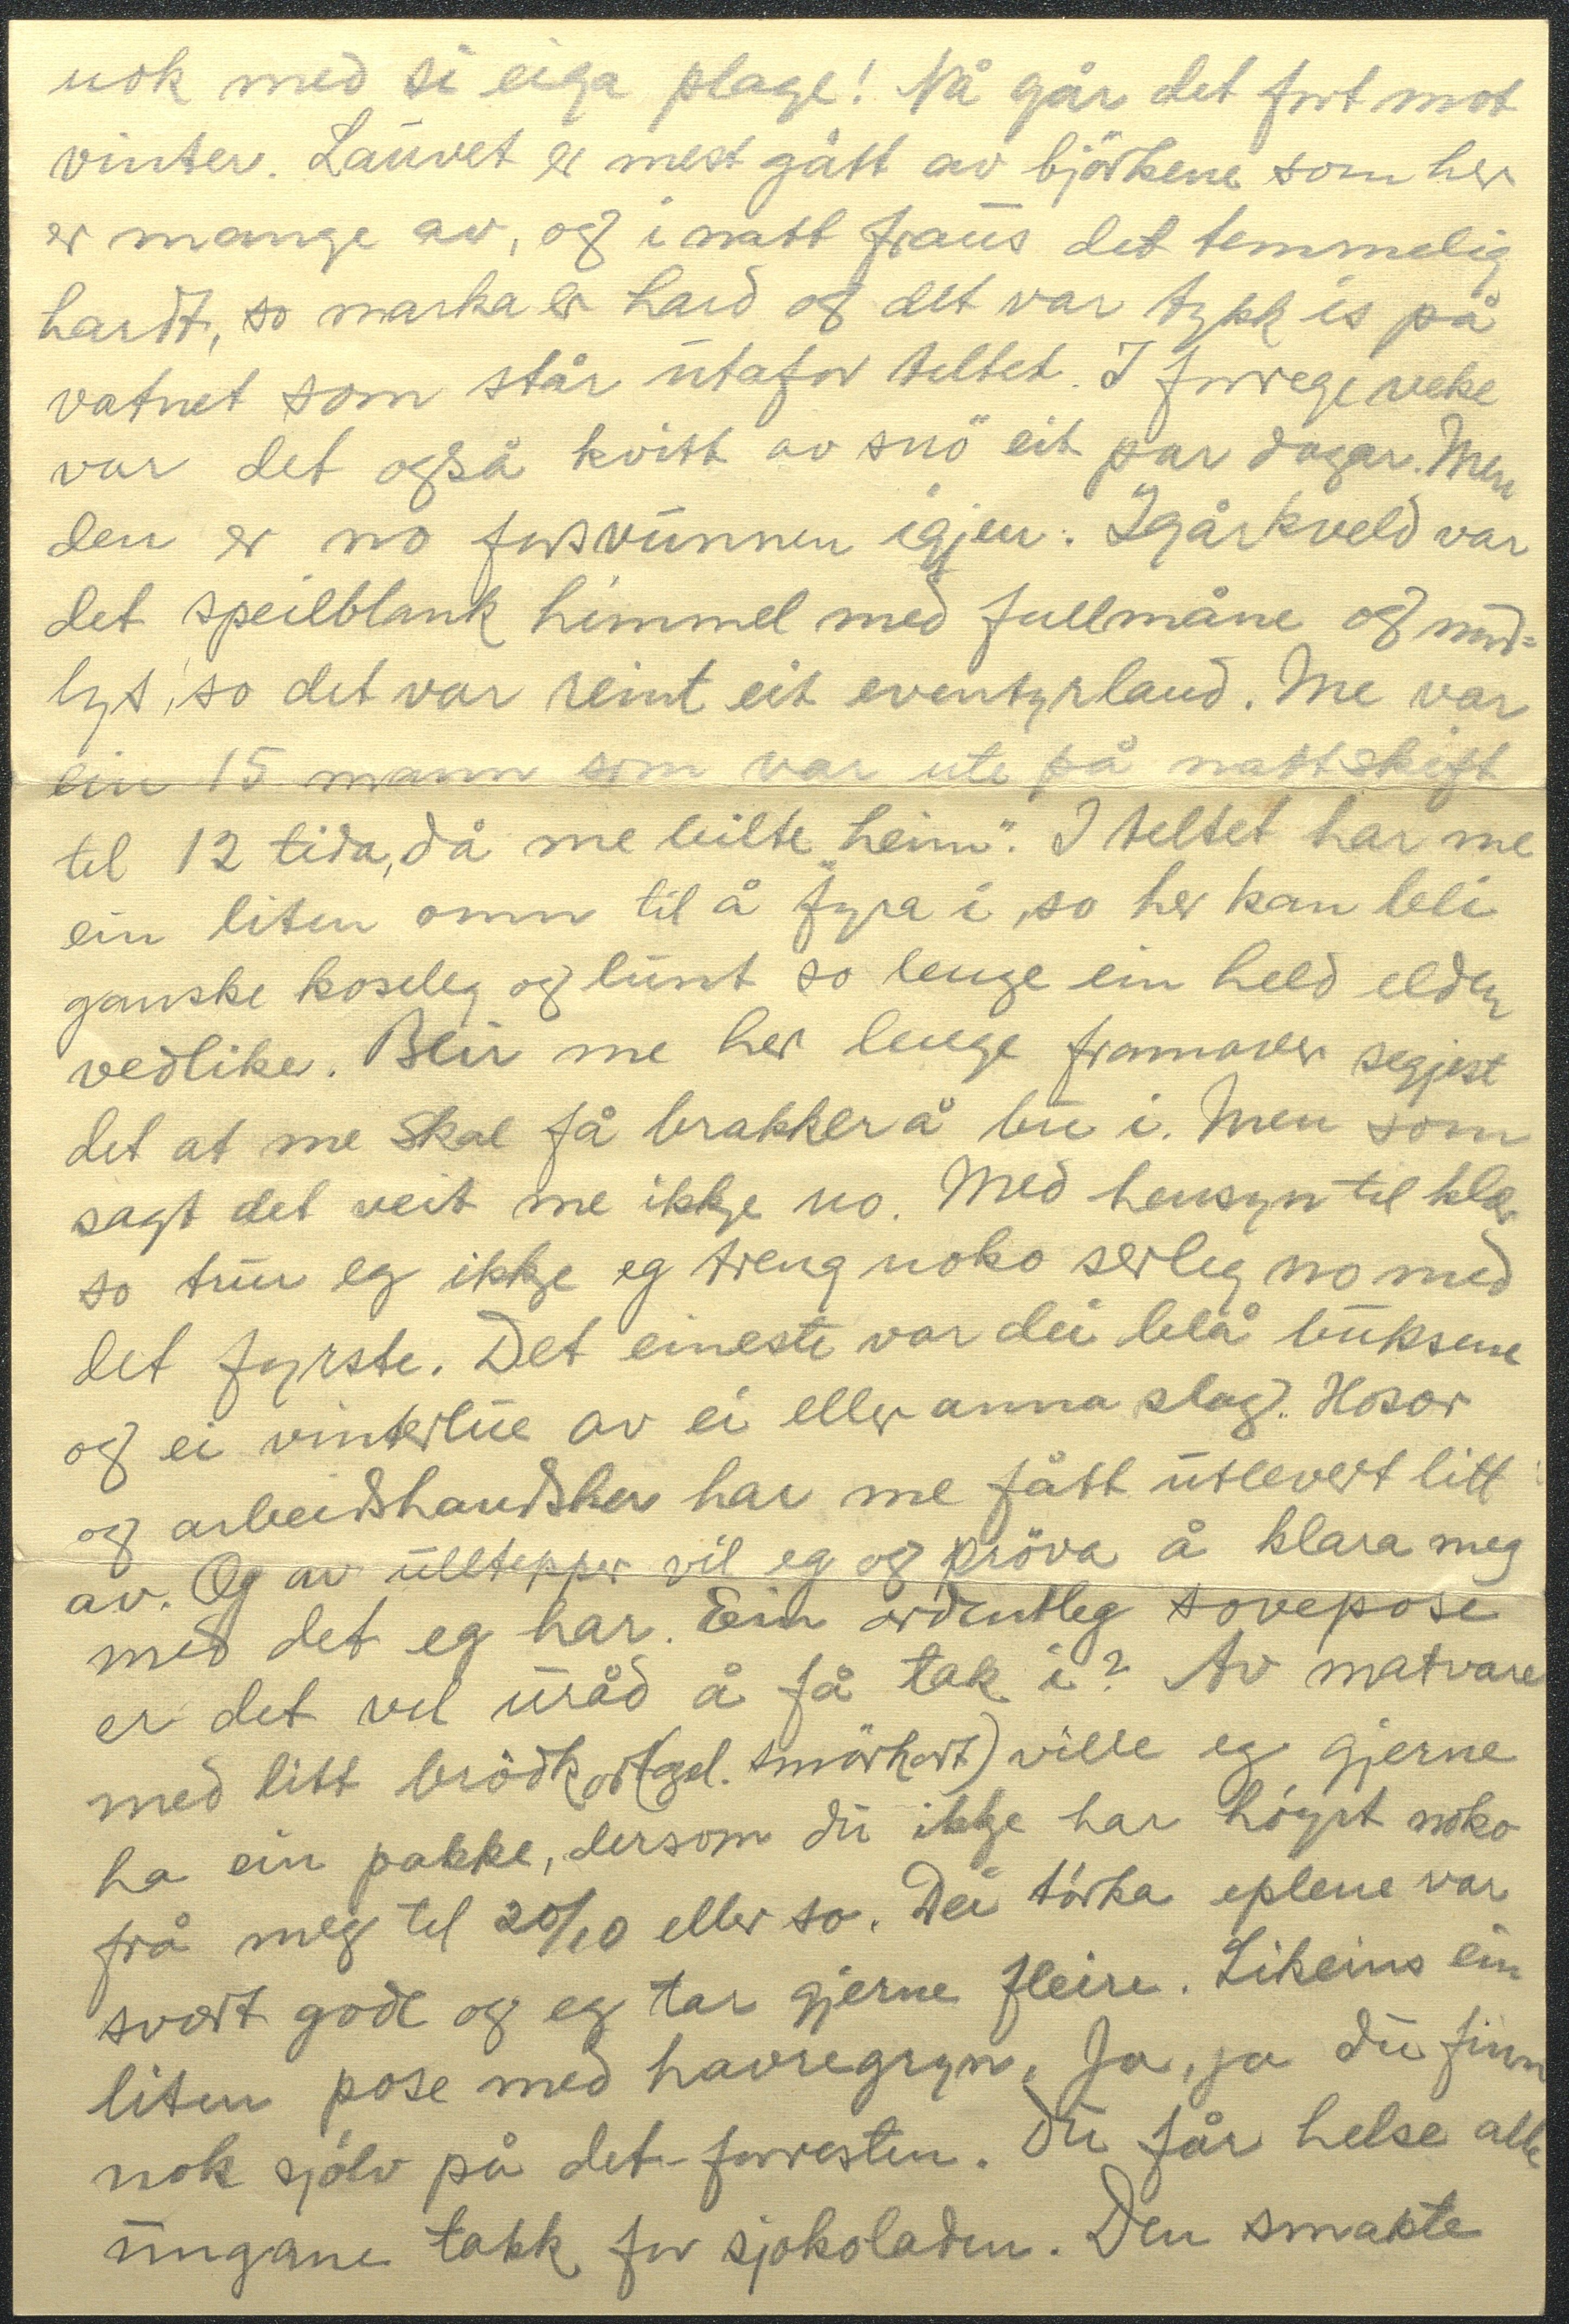 nok med si eiga plage! Nå går det fort mot
vinter. Lauvet er mest gått av björkene som her
er mange av, og i natt fraus det temmelig
hardt, so marka er hard og det var tykk is på
vatnet som står utafor teltet. I forrege veke
var det også kvitt av snö eit par dagar. Men
den er no forsvunnen igjen. Igårkveld var
det speilblank himmel med fullmåne og nord=
lys, so det var reint eit eventyrland. Me var
ein 15 mann som var ute på nattskift
til 12 tida, då me bilte "heim". I teltet har me
ein liten omn til å fyra i, so her kan bli
ganske koseleg og lunt so lenge ein held elden
vedlike. Blir me her lenge framover segjest
det at me skal få brakker å bu i. Men som
sagt det veit me ikkje no. Med hensyn til klær
so trur eg ikkje eg treng noko serleg no med
det fyrste. Det eineste var dei blå buksene
og ei vinterlue av ei eller anna slag. Hosor
og arbeidshandsker har me fått utlevert litt
av. Og av ulltepper vil eg og pröva å klara meg
med det eg har. Ein ordentleg sovepose
er det vel uråd å få tak i? Av matvare
med litt brödkort (gel. smörkort) ville eg gjerne
ha ein pakke, dersom du ikkje har höyrt noko
frå meg til 20/10 eller so. Dei törka eplene var
svært gode og eg tar gjerne fleire. Likeins ein
liten pose med havregryn. Ja, ja du finn
nok sjölv på det forresten. Du får helse alle
ungane takk for sjokoladen. Den smakte